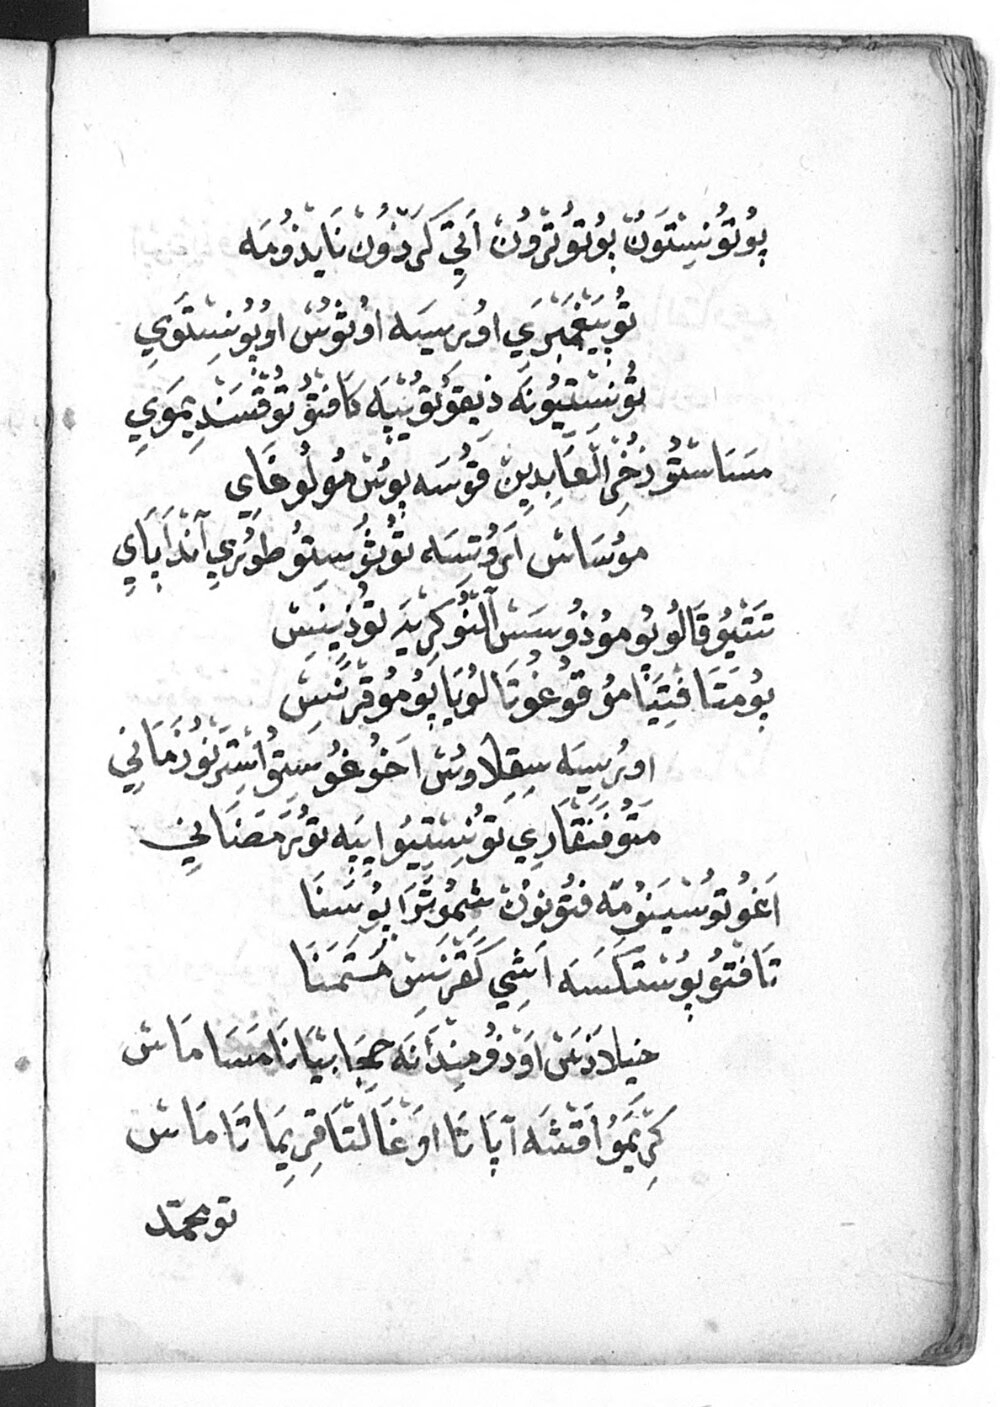 پُوتُو نِيسْتَوُنْ پُوتُوتْرُونْ اَتِي كَرَدْوُنْ نَايِذُومَه
تُو پَيْغَمْبَرِي اوُرِيسَه اوُتُوسْ اوُپُونِسْتَوِي
تُونِيسْتِيوُنَه ذِيقوُتُوپِيَه كَافْتُو تُوقْسَنْدِيمَوِي
مَسَاسْتُو ذُخْرِ الْعَابِدِينْ قوُسَه پوُسْ مُولُوغَايِ
موُسَاسْ اَرُوتِسَه تُوتُوسِتُو طوُرِي آنْدَاپَايِ
تَنْتِيُو قَالُو پوُ موُذوُسَسْ آللّٰهُو كَرِيَه تُو ذِينِيسْ
پوُمَتَافْتِيَا موُ قوُغُوتَا لوُيَا پوُ موُ قْرَنِسْ
اوُرِيسِيَه سِقِلَاوُسْ اَخُو غوُسِتُو اُسْتَرَنُو زَمَانِي
مَتُو فَنْقَارِي تُونِسْتِيوُ اِيپَه تُو رَمَضَانِي
اَغُو تُوسْيَنُومَه فْتُونوُنْ شِمُوتْرَا پُوسَنَا
تَافْتُو پوُسْتَكَسَه اَشِي كَقْرَنِسْ خَتْمَنَا
خِيلَاذَسْ اَوْذُومِنْدَانَه جَمِعَا پِيَانَا مَسَا مَاسْ
كِرْيَمُو اَقْتْشَه آپَاتَا اوَغَالْتَا قْرِيمَاتَا مَاسْ
تو محمّد